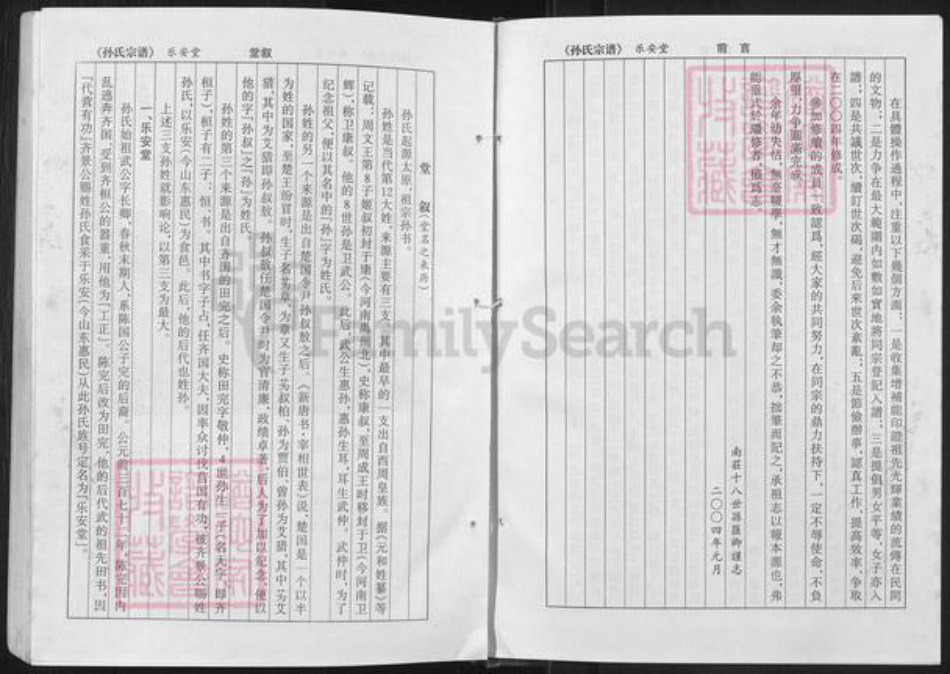 《孙氏宗谱》 乐安堂 前言
在具體操作過程中，注重以下幾個方面：一是收集增補能印證祖先光輝業績的流傳在民間
的文物；二是力争在最大範圍内如數如實地將同宗登記入譜；三是提倡男女平等，女子亦入
譜；四是共議世次，續訂世次碣，避免后來世次紊亂；五是節儉辦事，認真工作，提高效率，争取
在二〇〇四年修成。
參加修續的成員一致認爲，經大家的共同努力，在同宗的鼎力扶持下，一定不辱使命，不負
厚望，力争圓滿完成。
余年幼失怙，無意輟學，無才無識，委余執筆却之不恭，拙筆而記之，承祖志以報本源也，弗
能靈式於續修者，權爲志。
南莊十八世孫匯卿謹志
二〇〇四年元月
《孙氏宗谱》 乐安堂 堂叙
堂 叙（堂名之来历）
孙氏起源太原，祖宗孙书。
孙姓是当代第12大姓，来源主要有三支，其中最早的一支出自西周皇族。据《元和姓纂》等
记载：周文王第8子姬叔初封于康（今河南禹州北），史称康叔，至周成王时移封于卫（今河南卫
辉），称卫康叔。他的8世孙是卫武公。此后，武公生惠孙，惠孙生耳，耳生武仲，武仲时，为了
纪念祖父，便以其名中的「孙」字为姓氏。
孙姓的另一个来源是出自楚国令尹孙叔敖之后。《新唐书·宰相世表》说，楚国是一个以芈
为姓的国家，至楚王蚡冒时，生子名为章，为章又生子为叔柏、孙为贾伯、曾孙为艾猎，其中为艾
猎，其中为艾猎即孙叔敖。孙叔敖任楚国令尹时为官清廉，政绩卓著，后人为了加以纪念，便以
他的字「孙叔」之「孙」为姓氏。
孙姓的第三个来源是出自齐国的田完之后。史称田完字敬仲，4世孙生三子（名无宇，即齐
桓子），桓子有二子：恒、书。其中书字子占，任齐国大夫，因率众讨伐莒国有功，被齐景公赐姓
孙氏，以乐安（今山东惠民）为食邑。此后，他的后代也姓孙。
上述三支孙姓就影响论，以第三支为最大。
一、乐安堂
孙氏始祖武公字长卿，春秋末期人，系陈国公子完的后裔。公元前三百七十二年，陈完因内
乱逃奔齐国，受到齐桓公的器重，用他为「工正」。陈完后改为田完，他的后代武的祖先田书，因
「代营有功」齐景公赐姓孙氏食采于乐安（今山东惠民）从此孙氏族号定名为「乐安堂」。
FamilySearch